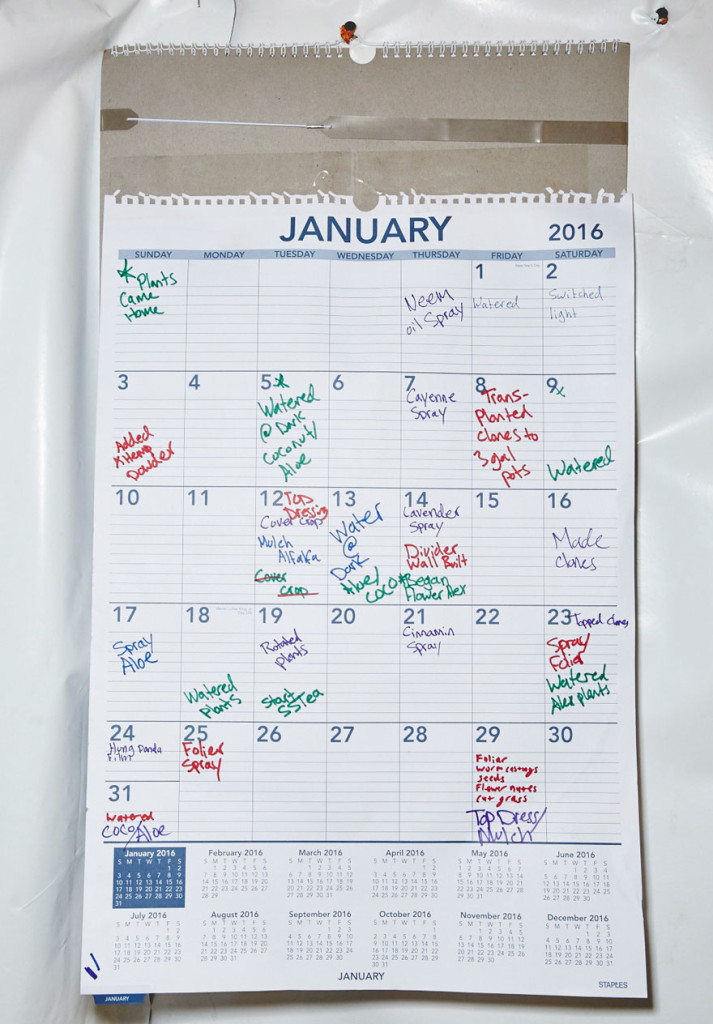 JANUARY
2016
SUNDAY MONDAY TUESDAY WEDNESDAY THURSDAY FRIDAY SATURDAY
* Plants
Came
Home
Neem
oil Spray
1
Watered
2
Switched
light
3
Added
Powder
4
5*
Watered
@ Dark
Coconut/
Aloe
6
7
Cayenne
Spray
8
Trans-
Planted
clones to
3 gal
pots
9x
Watered
10
11
12 Top
Dressing
Cover Crop
Mulch
Alfalfa
Cover
crop
13
Water
@
Dark
Aloe/
coco
14
Lavender
Spray
Divider
Wall Built
*Began
Flower Alex
15
16
Made
clones
17
Spray
Aloe
18
Watered
Plants
19
Rotated
Plents
Start
SSTea
20
21
Cinnamin
Spray
22
23 Topped clones
Spray
Folier
Watered
Alex plants
24
Hung Panda
Film
25
Folier
Spray
26
27
28
29
Folier
worm castings
seeds
Flower nutes
cut grass
Top Dress/
Mulch
30
31
Watered
Coco/Aloe
January 2016 February 2016 March 2016 April 2016 May 2016 June 2016
July 2016 August 2016 September 2016 October 2016 November 2016 December 2016
JANUARY
STAPLES
JANUARY